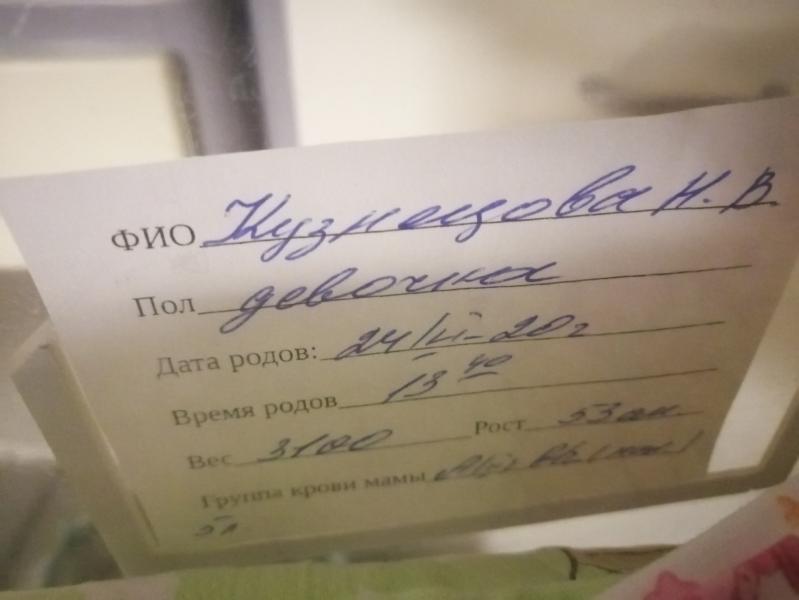 ФИО Кузнецова Н. В.
Пол девочка
Дата родов: 24/II-20г
Время родов 13 40
Вес 3100 Рост 53 см.
Группа крови мамы